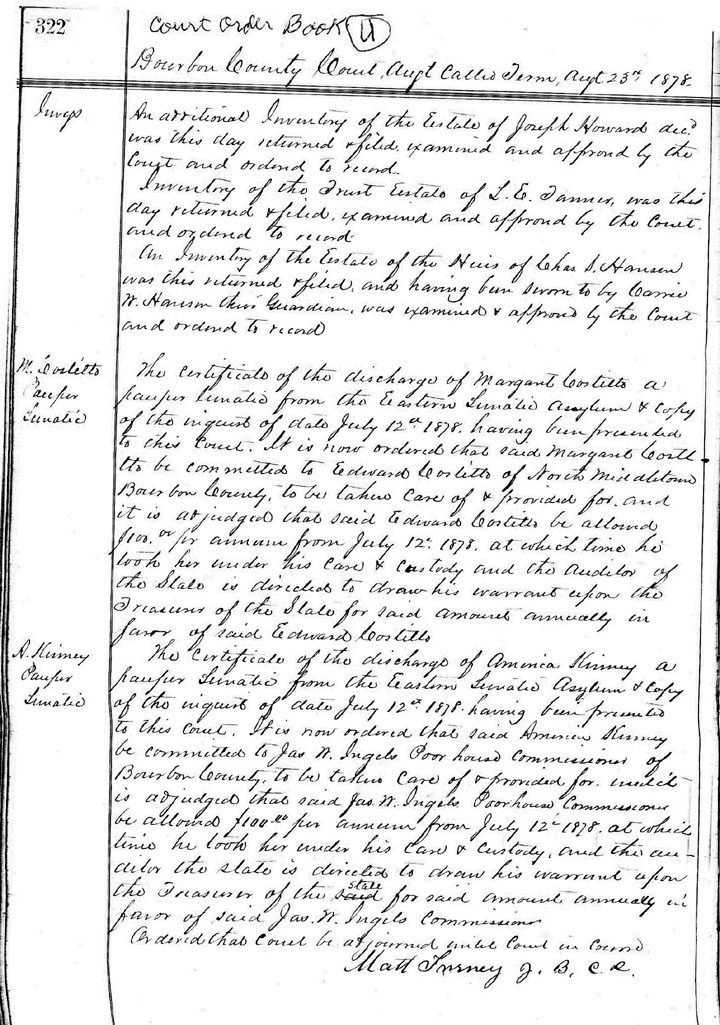 322
Court Order Book U
Bourbon County Court, Augt Called Term, Augt 23rd 1878.
Invys
An additional Inventory of the Estate of Joseph Howard decd
was this day returned & filed, examined and approvd by the
Court and ordered to record.
Inventory of the Trust Estate of L. E. Tanner, was this
day returned & filed, examined and approvd by the Court.
and ordered to record
An Inventory of the Estate of the Heirs of Chas S. Hanson
was this returned & filed, and having been sworn to by Carrie
W. Hanson their Guardian, was examined & approvd by the Court
and ordered to record
M. Costello
Pauper
Lunatic
The certificate of the discharge of Margaret Costello a
pauper lunatic from the Eastern Lunatic Assylum & copy
of the inquest of date July 12th 1878. having been presented
to this Court. It is now ordered that said Margaret Coste
llo be committed to Edward Costello of North Middletown
Bourbon County, to be taken care of & provided for. and
it is adjudged that said Edward Costello be allowed
$100.00 per annum from July 12th 1878. at which time he
took her under his care & custody and the Auditor of
the State is directed to draw his warrant upon the
Treasurer of the State for said amount annually in
favor of said Edward Costello
A. Kinney
Pauper
Lunatic
The certificate of the discharge of America Kinney a
pauper Lunatic from the Eastern Lunatic Asylum & copy
of the inquest of date July 12th 1878. having been presented
to this Court. It is now ordered that said America Kinney
be committed to Jas W. Ingels Poor house Commissioner of
Bourbon County, to be taken care of & provided for. and it
is adjudged that said Jas. W. Ingels Poorhouse Commissioner
be allowed $100.00 per annum from July 12th 1878. at which
time he took her under his care & custody, and the au-
ditor the state is directed to draw his warrant upon
the Treasurer of the said State for said amount annually in
favor of said Jas. W. Ingels Commissioner
Ordered that Court be adjourned until Court in Course
Matt Turney J. B. C. C.